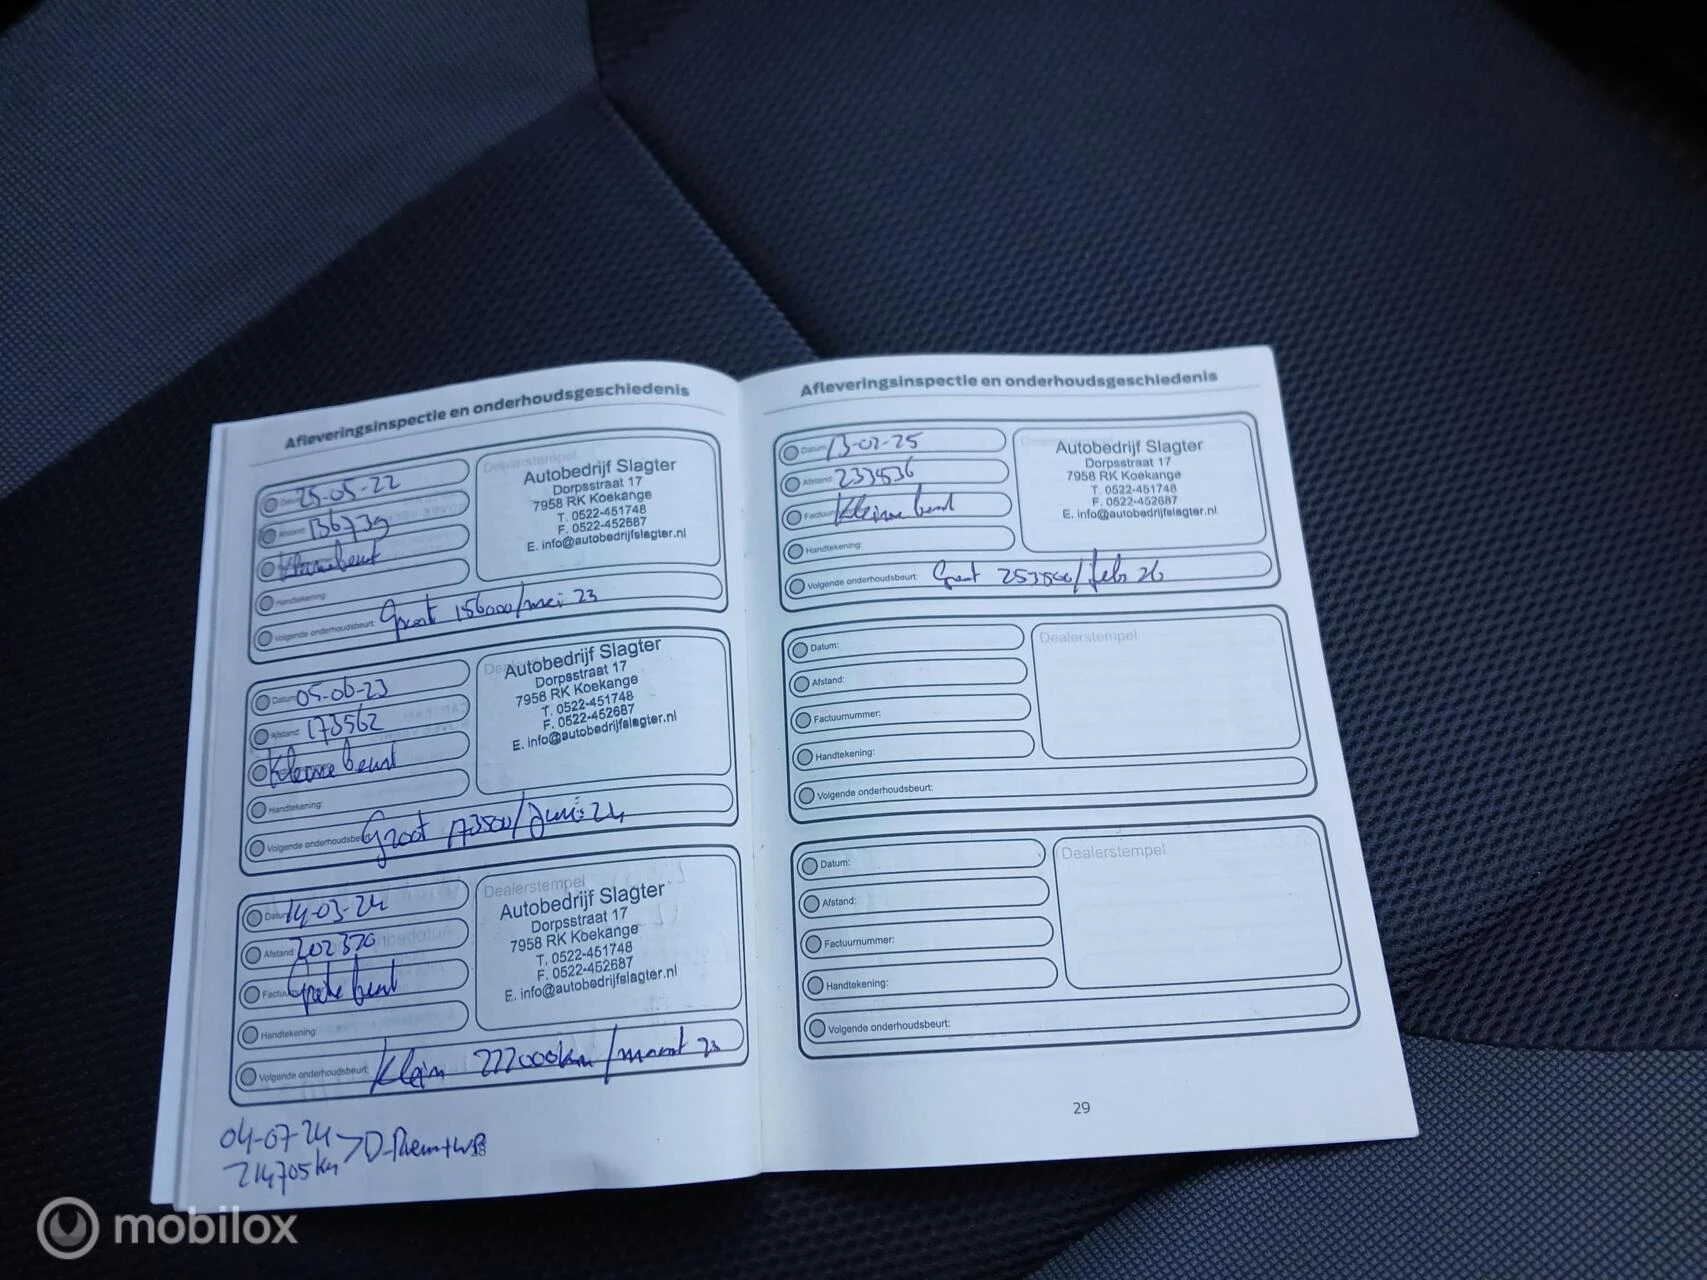 Afleveringsinspectie en onderhoudsgeschiedenis
Datum: 25-05-22
Afstand: 136739
Kleine beurt
Handtekening:
Volgende onderhoudsbeurt: Groot 156000/mei 23
Dealerstempel
Autobedrijf Slagter
Dorpsstraat 17
7958 RK Koekange
T. 0522-451748
F. 0522-452687
E. info@autobedrijfslagter.nl
Datum: 05-06-23
Afstand: 173562
Kleine beurt
Handtekening:
Volgende onderhoudsbeurt: Groot /Juni 24
Autobedrijf Slagter
Dorpsstraat 17
7958 RK Koekange
T. 0522-451748
F. 0522-452687
E. info@autobedrijfslagter.nl
Datum: 14-03-24
Afstand: 202320
Grote beurt
Handtekening:
Volgende onderhoudsbeurt: Klein 222000km /maart
Dealerstempel
Autobedrijf Slagter
Dorpsstraat 17
7958 RK Koekange
T. 0522-451748
F. 0522-452687
E. info@autobedrijfslagter.nl
04-07-24
214705km
Afleveringsinspectie en onderhoudsgeschiedenis
Datum: 13-02-25
Afstand: 233536
Kleine beurt
Handtekening:
Volgende onderhoudsbeurt: Groot 253500/feb 26
Autobedrijf Slagter
Dorpsstraat 17
7958 RK Koekange
T. 0522-451748
F. 0522-452687
E. info@autobedrijfslagter.nl
Datum:
Afstand:
Factuurnummer:
Handtekening:
Volgende onderhoudsbeurt:
Dealerstempel
Datum:
Afstand:
Factuurnummer:
Handtekening:
Volgende onderhoudsbeurt:
Dealerstempel
29
mobilox